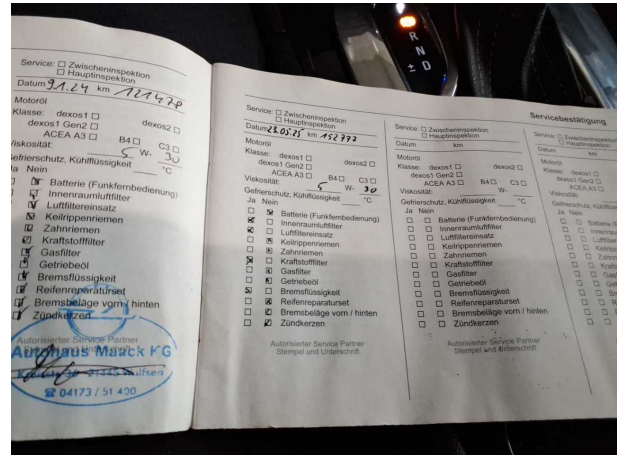 R
N
± D
Service: ☐ Zwischeninspektion
☐ Hauptinspektion
Datum 9.1.24 km 121478
Motoröl
Klasse: dexos1 ☐ dexos2 ☐
dexos1 Gen2 ☐
ACEA A3 ☐ B4 ☐ C3 ☐
Viskosität: 5 W- 30
Gefrierschutz, Kühlflüssigkeit °C
Ja Nein
Batterie (Funkfernbedienung)
Innenraumluftfilter
Luftfiltereinsatz
Keilrippenriemen
Zahnriemen
Kraftstofffilter
Gasfilter
Getriebeöl
Bremsflüssigkeit
Reifenreparaturset
Bremsbeläge vorn / hinten
Zündkerzen
Autorisierter Service Partner
Autohaus Maack KG
21445 Wulfsen
☎ 04173 / 51 400
Service: ☐ Zwischeninspektion
☐ Hauptinspektion
Datum 23.05.25 km 152777
Motoröl
Klasse: dexos1 ☐ dexos2 ☐
dexos1 Gen2 ☐
ACEA A3 ☐ B4 ☐ C3 ☐
Viskosität: 5 W- 30
Gefrierschutz, Kühlflüssigkeit °C
Ja Nein
☐ ☒ Batterie (Funkfernbedienung)
☒ ☐ Innenraumluftfilter
☒ ☐ Luftfiltereinsatz
☐ ☒ Keilrippenriemen
☐ ☒ Zahnriemen
☒ ☐ Kraftstofffilter
☐ ☒ Gasfilter
☐ ☒ Getriebeöl
☒ ☐ Bremsflüssigkeit
☐ ☒ Reifenreparaturset
☐ ☒ Bremsbeläge vorn / hinten
☐ ☒ Zündkerzen
Autorisierter Service Partner
Stempel und Unterschrift
Servicebestätigung
Service: ☐ Zwischeninspektion
☐ Hauptinspektion
Datum km
Motoröl
Klasse: dexos1 ☐ dexos2 ☐
dexos1 Gen2 ☐
ACEA A3 ☐ B4 ☐ C3 ☐
Viskosität: W-
Gefrierschutz, Kühlflüssigkeit °C
Ja Nein
☐ ☐ Batterie (Funkfernbedienung)
☐ ☐ Innenraumluftfilter
☐ ☐ Luftfiltereinsatz
☐ ☐ Keilrippenriemen
☐ ☐ Zahnriemen
☐ ☐ Kraftstofffilter
☐ ☐ Gasfilter
☐ ☐ Getriebeöl
☐ ☐ Bremsflüssigkeit
☐ ☐ Reifenreparaturset
☐ ☐ Bremsbeläge vorn / hinten
☐ ☐ Zündkerzen
Autorisierter Service Partner
Stempel und Unterschrift
Service: ☐ Zwischeninspektion
☐ Hauptinspektion
Datum km
Motoröl
Klasse: dexos1 ☐
dexos1 Gen2 ☐
ACEA A3 ☐
Viskosität:
Gefrierschutz, Kühlflüssigkeit
Ja Nein